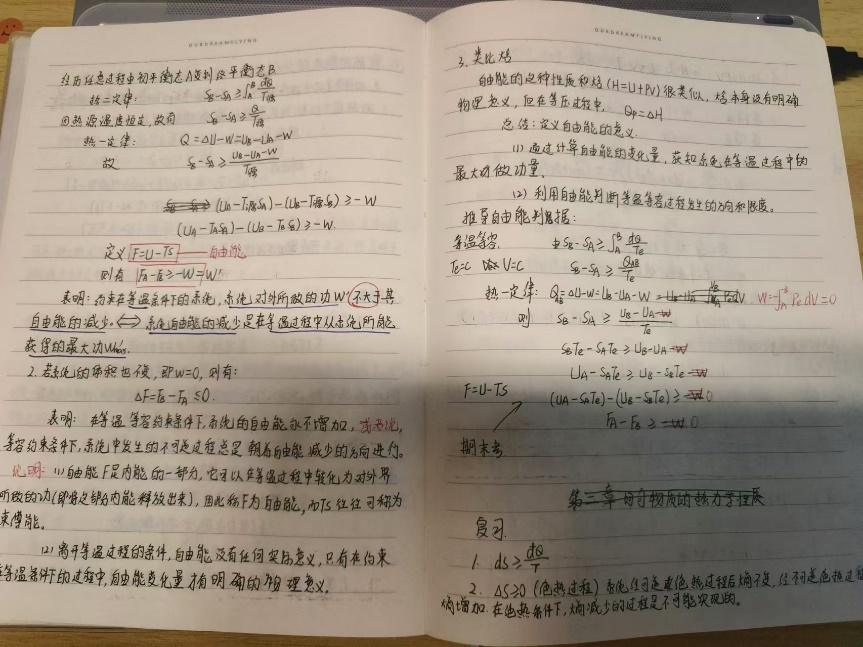 OURDREAMFLYING
经历任意过程由初平衡态A变到终平衡态B
热二定律: S_B-S_A≥∫_A^B dQ/T_源
因热源温度恒定,故有 S_B-S_A≥Q/T_源
热一定律: Q=ΔU-W=U_B-U_A-W
故 S_B-S_A≥(U_B-U_A-W)/T_源
(U_A-T_源S_A)-(U_B-T_源S_B)≥-W
(U_A-T_AS_A)-(U_B-T_BS_B)≥-W.
定义 F=U-TS ——自由能
则有 F_A-F_B≥-W=W'
表明:约束在等温条件下的系统,系统对外所做的功W'不大于其
自由能的减少.⟺系统自由能的减少是在等温过程中从系统所能
获得的最大功W'max.
2. 若系统的体积也不变,即W=0,则有:
ΔF=F_B-F_A≤0.
表明: 在等温等容约束条件下,系统的自由能永不增加,或者说,
等容约束条件下,系统中发生的不可逆过程总是朝着自由能减少的方向进行。
说明:(1)自由能F是内能的一部分,它可以在等温过程中转化为对外界
所做的功(即将这部分内能释放出来),因此称F为自由能,而TS往往可称为
束缚能。
(2)离开等温过程的条件,自由能没有任何实际意义,只有在约束
在等温条件下的过程中,自由能变化量才有明确的物理意义。
OURDREAMFLYING
3. 类比焓
自由能的这种性质和焓(H=U+PV)很类似,焓本身没有明确
物理意义,但在等压过程中, Q_P=ΔH
总结:定义自由能的意义.
(1)通过计算自由能的变化量,获知系统在等温过程中的
最大功做功量,
(2)利用自由能判断等温等容过程发生的方向和限度。
推导自由能判据:
等温等容. 由S_B-S_A≥∫_A^B dQ/T_e
T_e=C V=C S_B-S_A≥Q_AB/T_e
热一定律: Q_AB=ΔU-W=U_B-U_A-W W=-∫_A^B P_e dV=0
则 S_B-S_A≥(U_B-U_A-W)/T_e
S_BT_e-S_AT_e≥U_B-U_A-W
U_A-S_AT_e≥U_B-S_BT_e-W
F=U-TS (U_A-S_AT_e)-(U_B-S_BT_e)≥-W 0
F_A-F_B≥-W.0
期末考
第三章 均匀物质的热力学性质
复习.
1. ds≥dQ/T
2. ΔS≥0 (绝热过程) 系统经可逆绝热过程后熵不变,经不可逆绝热过程
熵增加.在绝热条件下,熵减少的过程是不可能实现的。